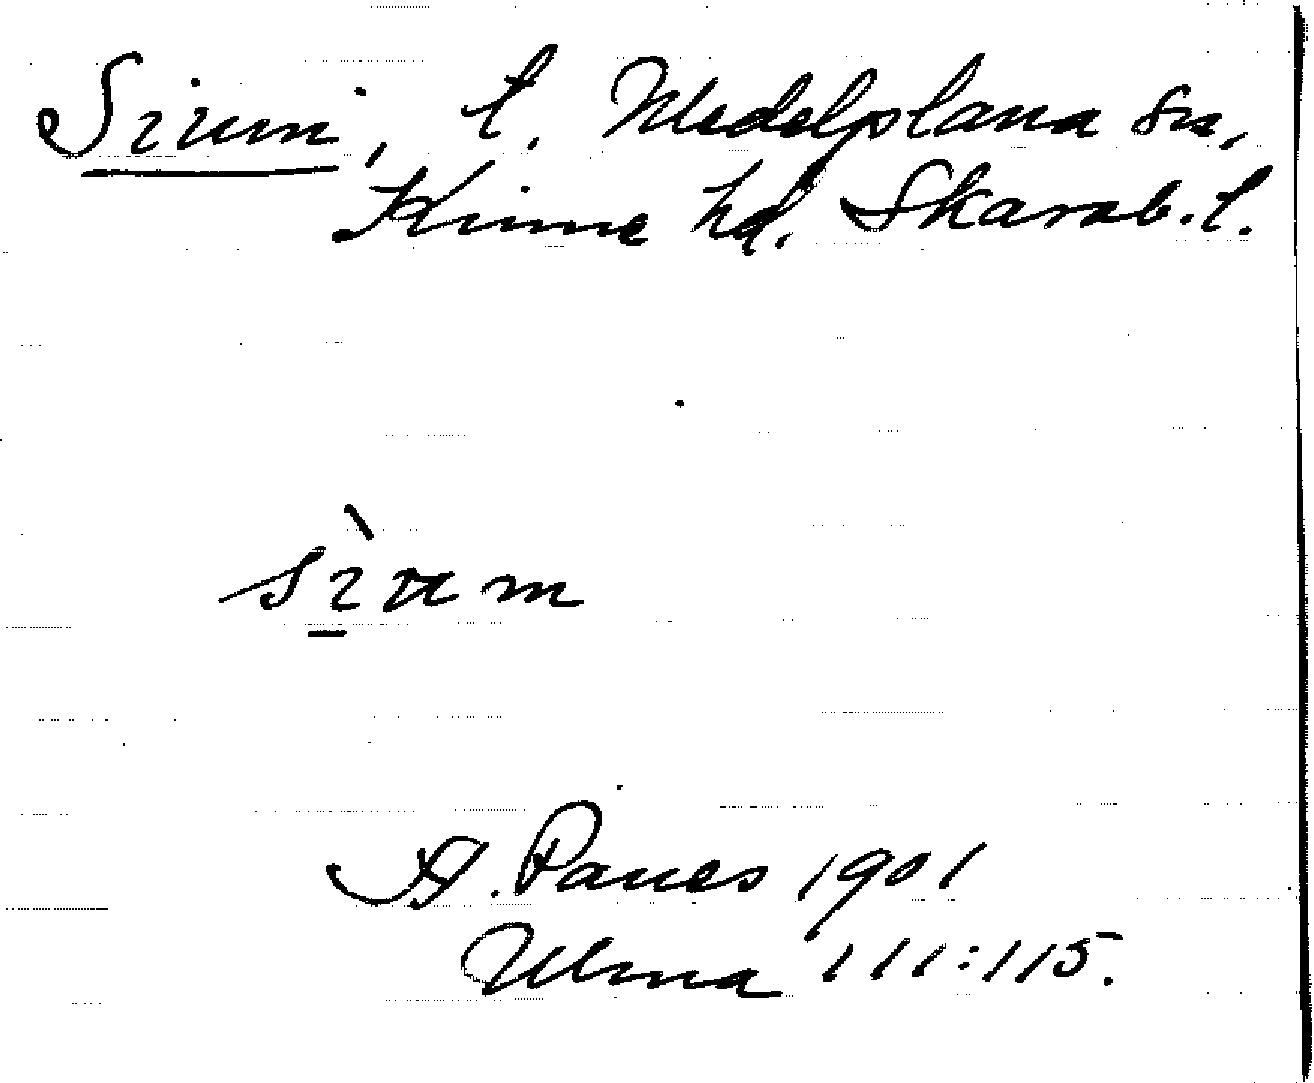 Sirum, t. Medelplana sn,
Kinne hd. Skarab. l.
sı̀rum
A. Paues 1901
Ulma 111:115.